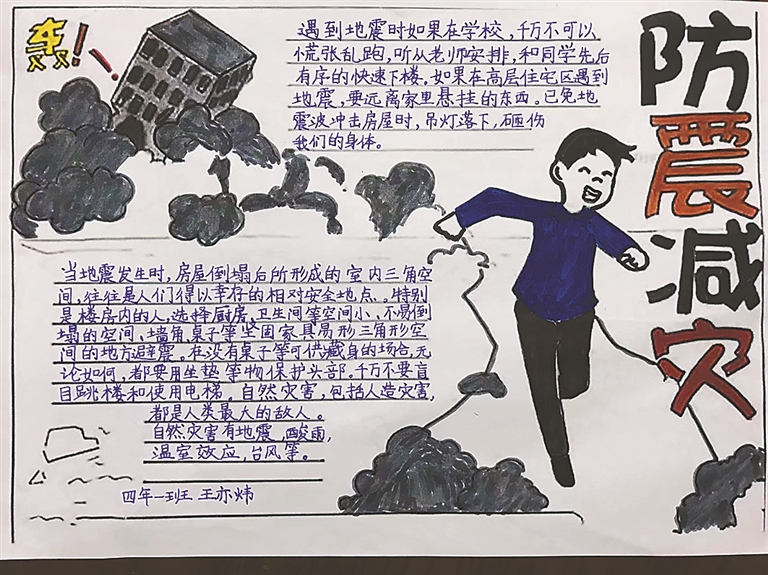 轰!
防震减灾
遇到地震时如果在学校,千万不可以
慌张乱跑,听从老师安排,和同学先后
有序的快速下楼。如果在高层住宅区遇到
地震,要远离家里悬挂的东西。已免地
震波冲击房屋时,吊灯落下,砸伤
我们的身体。
当地震发生时,房屋倒塌后所形成的室内三角空
间,往往是人们得以幸存的相对安全地点。特别
是楼房内的人,选择厨房、卫生间等空间小、不易倒
塌的空间,墙角桌子等坚固家具易形三角形空
间的地方避震。在没有桌子等可供藏身的场合,无
论如何,都要用坐垫等物保护头部。千万不要盲
目跳楼和使用电梯。自然灾害,包括人造灾害,
都是人类最大的敌人。
自然灾害有地震,酸雨,
温室效应,台风等。
四年一班 王亦炜